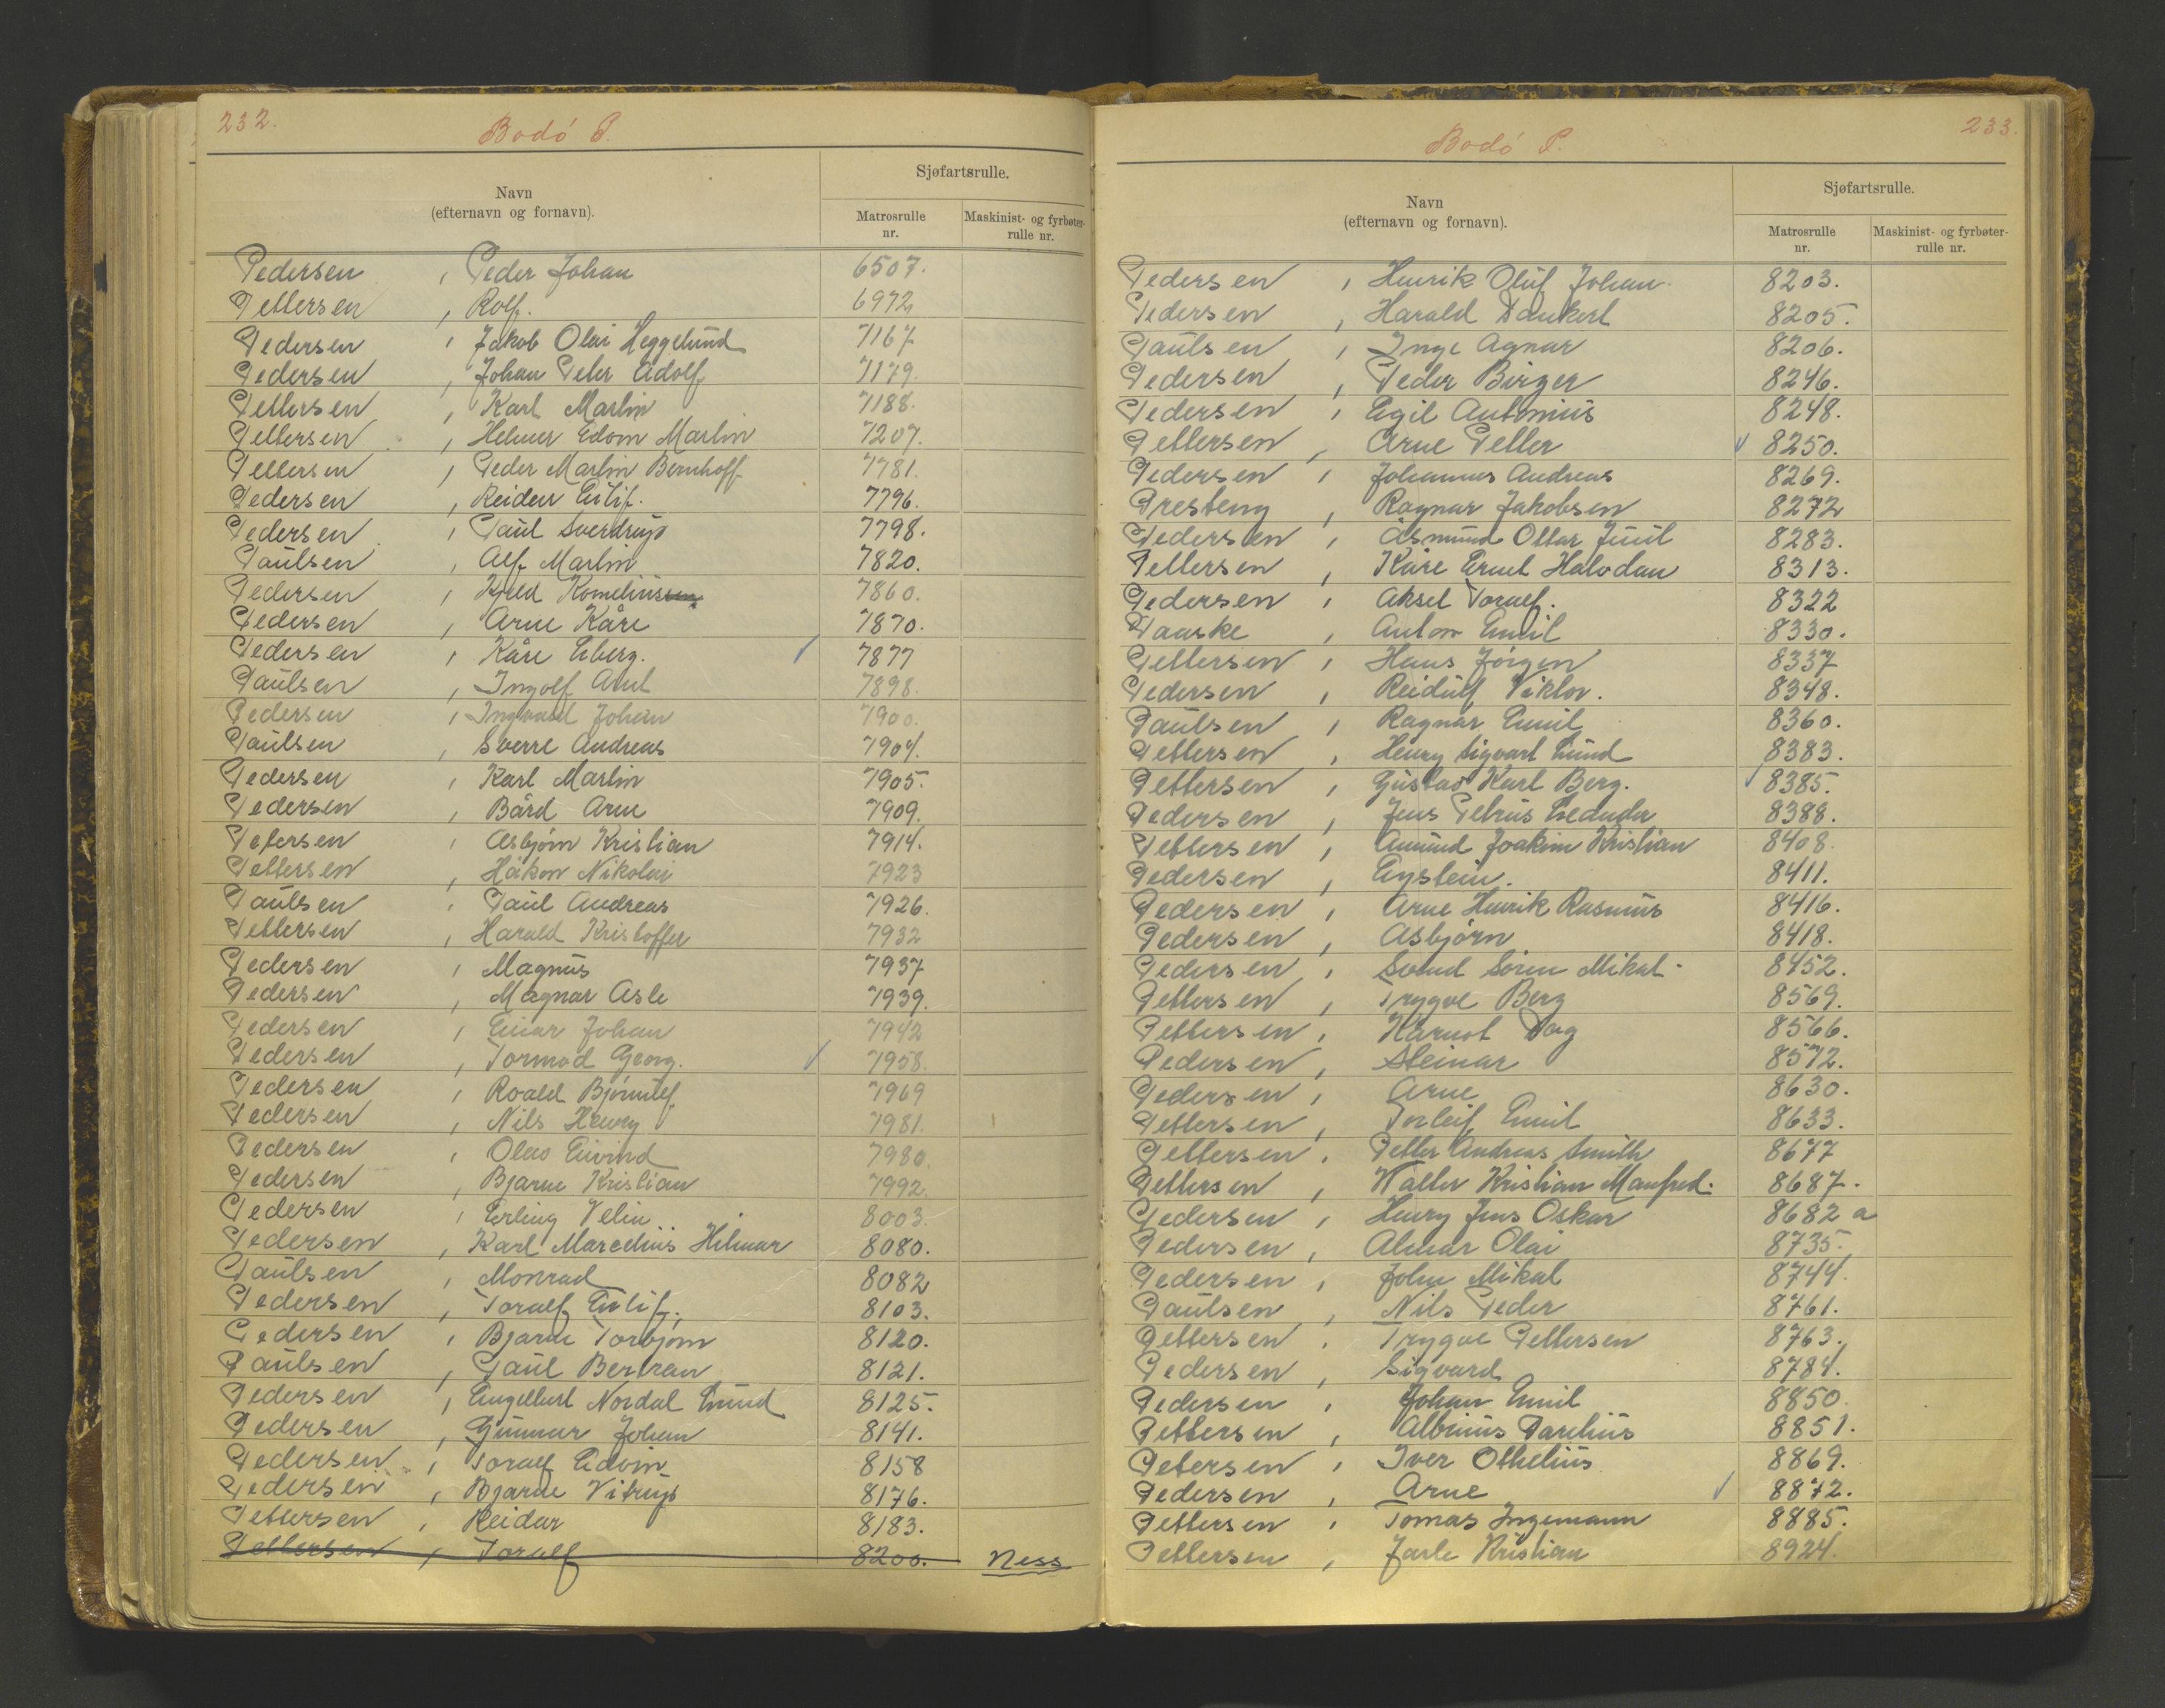 232.
Bodó P.
Navn
(efternavn og fornavn).
Sjøfartsrulle.
Matrosrulle
nr.
Maskinist- og fyrbøter-
rulle nr.
Pedersen , Peder Johan 6507.
Pettersen , Rolf. 6972
Pedersen , Jakob Olai Heggelund 7167
Pedersen , Johan Peter Adolf 7179.
Pettersen , Karl Martin 7188.
Pettersen , Helmer Edom Martin 7207.
Pettersen , Peder Martin Bernhoff 7781.
Pedersen , Reidar Eilif. 7796.
Pedersen , Paul Sverdrup 7798.
Paulsen , Alf Martin 7820.
Pedersen , Kjeld Kornelius 7860.
Pedersen , Arne Kåre 7870.
Pedersen , Kåre Eberg. 7877
Paulsen , Ingolf Arnt 7898.
Pedersen , Ingvald Johan 7900.
Paulsen , Sverre Andreas 7904.
Pedersen , Karl Martin 7905.
Pedersen , Bård Arne 7909.
Petersen , Asbjørn Kristian 7914.
Pettersen , Håkon Nikolai 7923
Paulsen , Paul Andreas 7926.
Pettersen , Harald Kristoffer 7932
Pedersen , Magnus 7937
Pedersen , Magnar Asle 7939.
Pedersen , Einar Johan 7942
Pedersen , Tormod Georg. 7958.
Pedersen , Roald Bjørnulf 7969
Pedersen , Nils Henry 7981.
Pedersen , Olav Eivind 7980.
Pedersen , Bjarne Kristian 7992.
Pedersen , Erling Velin 8003.
Pedersen , Karl Marcelius Hilmar 8080.
Paulsen , Monrad 8082
Pedersen , Toralf Eilif. 8103.
Pedersen , Bjarne Torbjørn 8120.
Paulsen , Paul Bertran 8121.
Pedersen , Engelbert Nordal Lund 8125.
Pedersen , Gunnar Johan 8141.
Pedersen , Toralf Edvin 8158
Pedersen , Bjarne Vitrup 8176.
Pettersen , Reidar 8183.
Pettersen , Toralf 8200. Ness
233.
Bodó P.
Navn
(efternavn og fornavn).
Sjøfartsrulle.
Matrosrulle
nr.
Maskinist- og fyrbøter-
rulle nr.
Pedersen , Henrik Oluf Johan. 8203.
Pedersen , Harald Dankert 8205.
Paulsen , Inge Agnar 8206.
Pedersen , Peder Birger 8246.
Pedersen , Egil Antonius 8248.
Pettersen , Arne Petter 8250.
Pedersen , Johannes Andreas 8269.
Presteng , Ragnar Jakobsen 8272
Pedersen , Åsmund Ottar Juul 8283.
Pettersen , Kåre Ernst Halvdan 8313.
Pedersen , Aksel Toralf. 8322
Paaske , Anton Emil 8330.
Pettersen , Hans Jørgen 8337
Pedersen , Reidulf Viktor. 8348.
Paulsen , Ragnar Emil 8360.
Pettersen , Henry Sigvart Lund 8383.
Pettersen , Gustav Karl Berg. 8385.
Pedersen , Jens Petrus 8388.
Pettersen , Amund Joakim Kristian 8408.
Pedersen , Eystein. 8411.
Pedersen , Arne Henrik Rasmus 8416.
Pedersen , Asbjørn 8418.
Pedersen , Svend Søren Mikal. 8452.
Pettersen , Trygve Berg 8569.
Pettersen , Dag 8566.
Pedersen , Steinar 8572.
Pedersen , Arne 8630.
Pettersen , Torleif Emil 8633.
Pettersen , Petter Andreas Smith 8677
Pettersen , Walter Kristian Manfred. 8687.
Pedersen , Henry Jens Oskar 8682 a
Pedersen , Almar Olai 8735.
Pedersen , John Mikal 8744.
Paulsen , Nils Peder 8761.
Pettersen , Trygve Pettersen 8763.
Pedersen , Sigvard 8784.
Pedersen , Johan Emil 8850.
Pettersen , Albinius Parelius 8851.
Petersen , Iver Othelius 8869.
Pedersen , Arne 8872.
Pettersen , Tomas Ingemann 8885.
Pettersen , Jarle Kristian 8924.